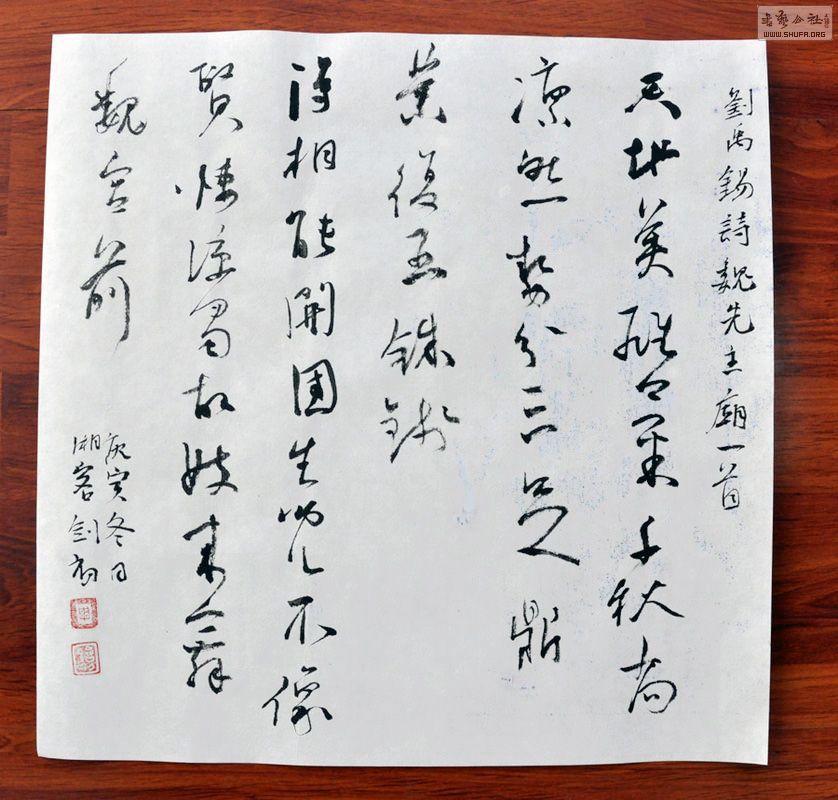 書藝公社
WWW.SHUFA.ORG
劉禹錫詩魏先主廟一首
天地英雄氣千秋尚
凜然勢分三足鼎
業復五銖錢
得相能開國生兒不像
賢悽涼蜀故妓來舞
魏宮前
庚寅冬日
湘客劍初